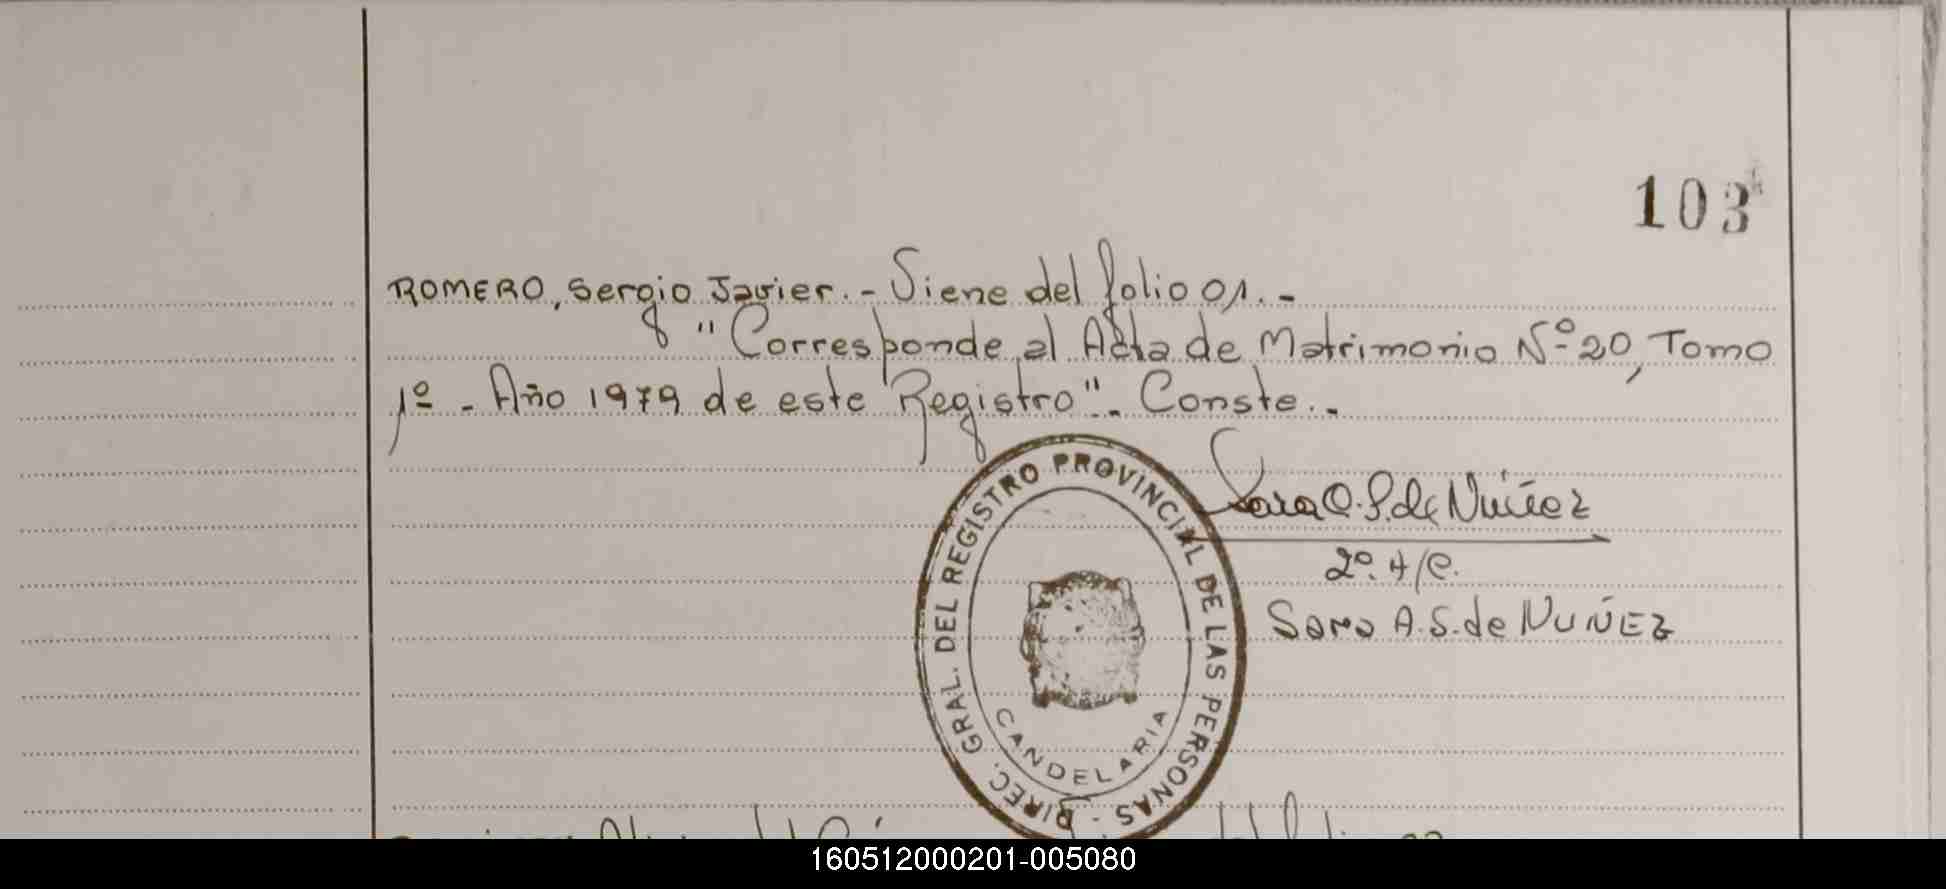 103
ROMERO, Sergio Javier.- Viene del folio 01.-
"Corresponde al Acta de Matrimonio Nº 20, Tomo
1º - Año 1979 de este Registro". Conste.-
DIREC. GRAL. DEL REGISTRO PROVINCIAL DE LAS PERSONAS -
CANDELARIA
Sara S. de Núñez
2º. J/C.
Sara A. S. de NUÑEZ
160512000201-005080